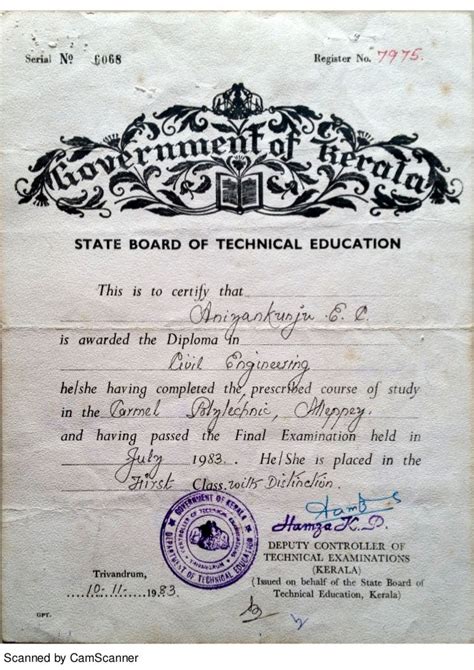 Serial Nº 6068 Register No. 7975.
Government of Kerala
STATE BOARD OF TECHNICAL EDUCATION
This is to certify that
Aniyankunju E. C.
is awarded the Diploma in
Civil Engineering
he/she having completed the prescribed course of study
in the Carmel Polytechnic, Meppey.
and having passed the Final Examination held in
July 1983. He/She is placed in the
First Class. with Distinction.
GOVERNMENT OF KERALA
DEPARTMENT OF TECHNICAL EDUCATION
Hamza K. P.
DEPUTY CONTROLLER OF
TECHNICAL EXAMINATIONS
(KERALA)
(Issued on behalf of the State Board of
Technical Education, Kerala)
Trivandrum,
10-11-1983.
GPT.
Scanned by CamScanner